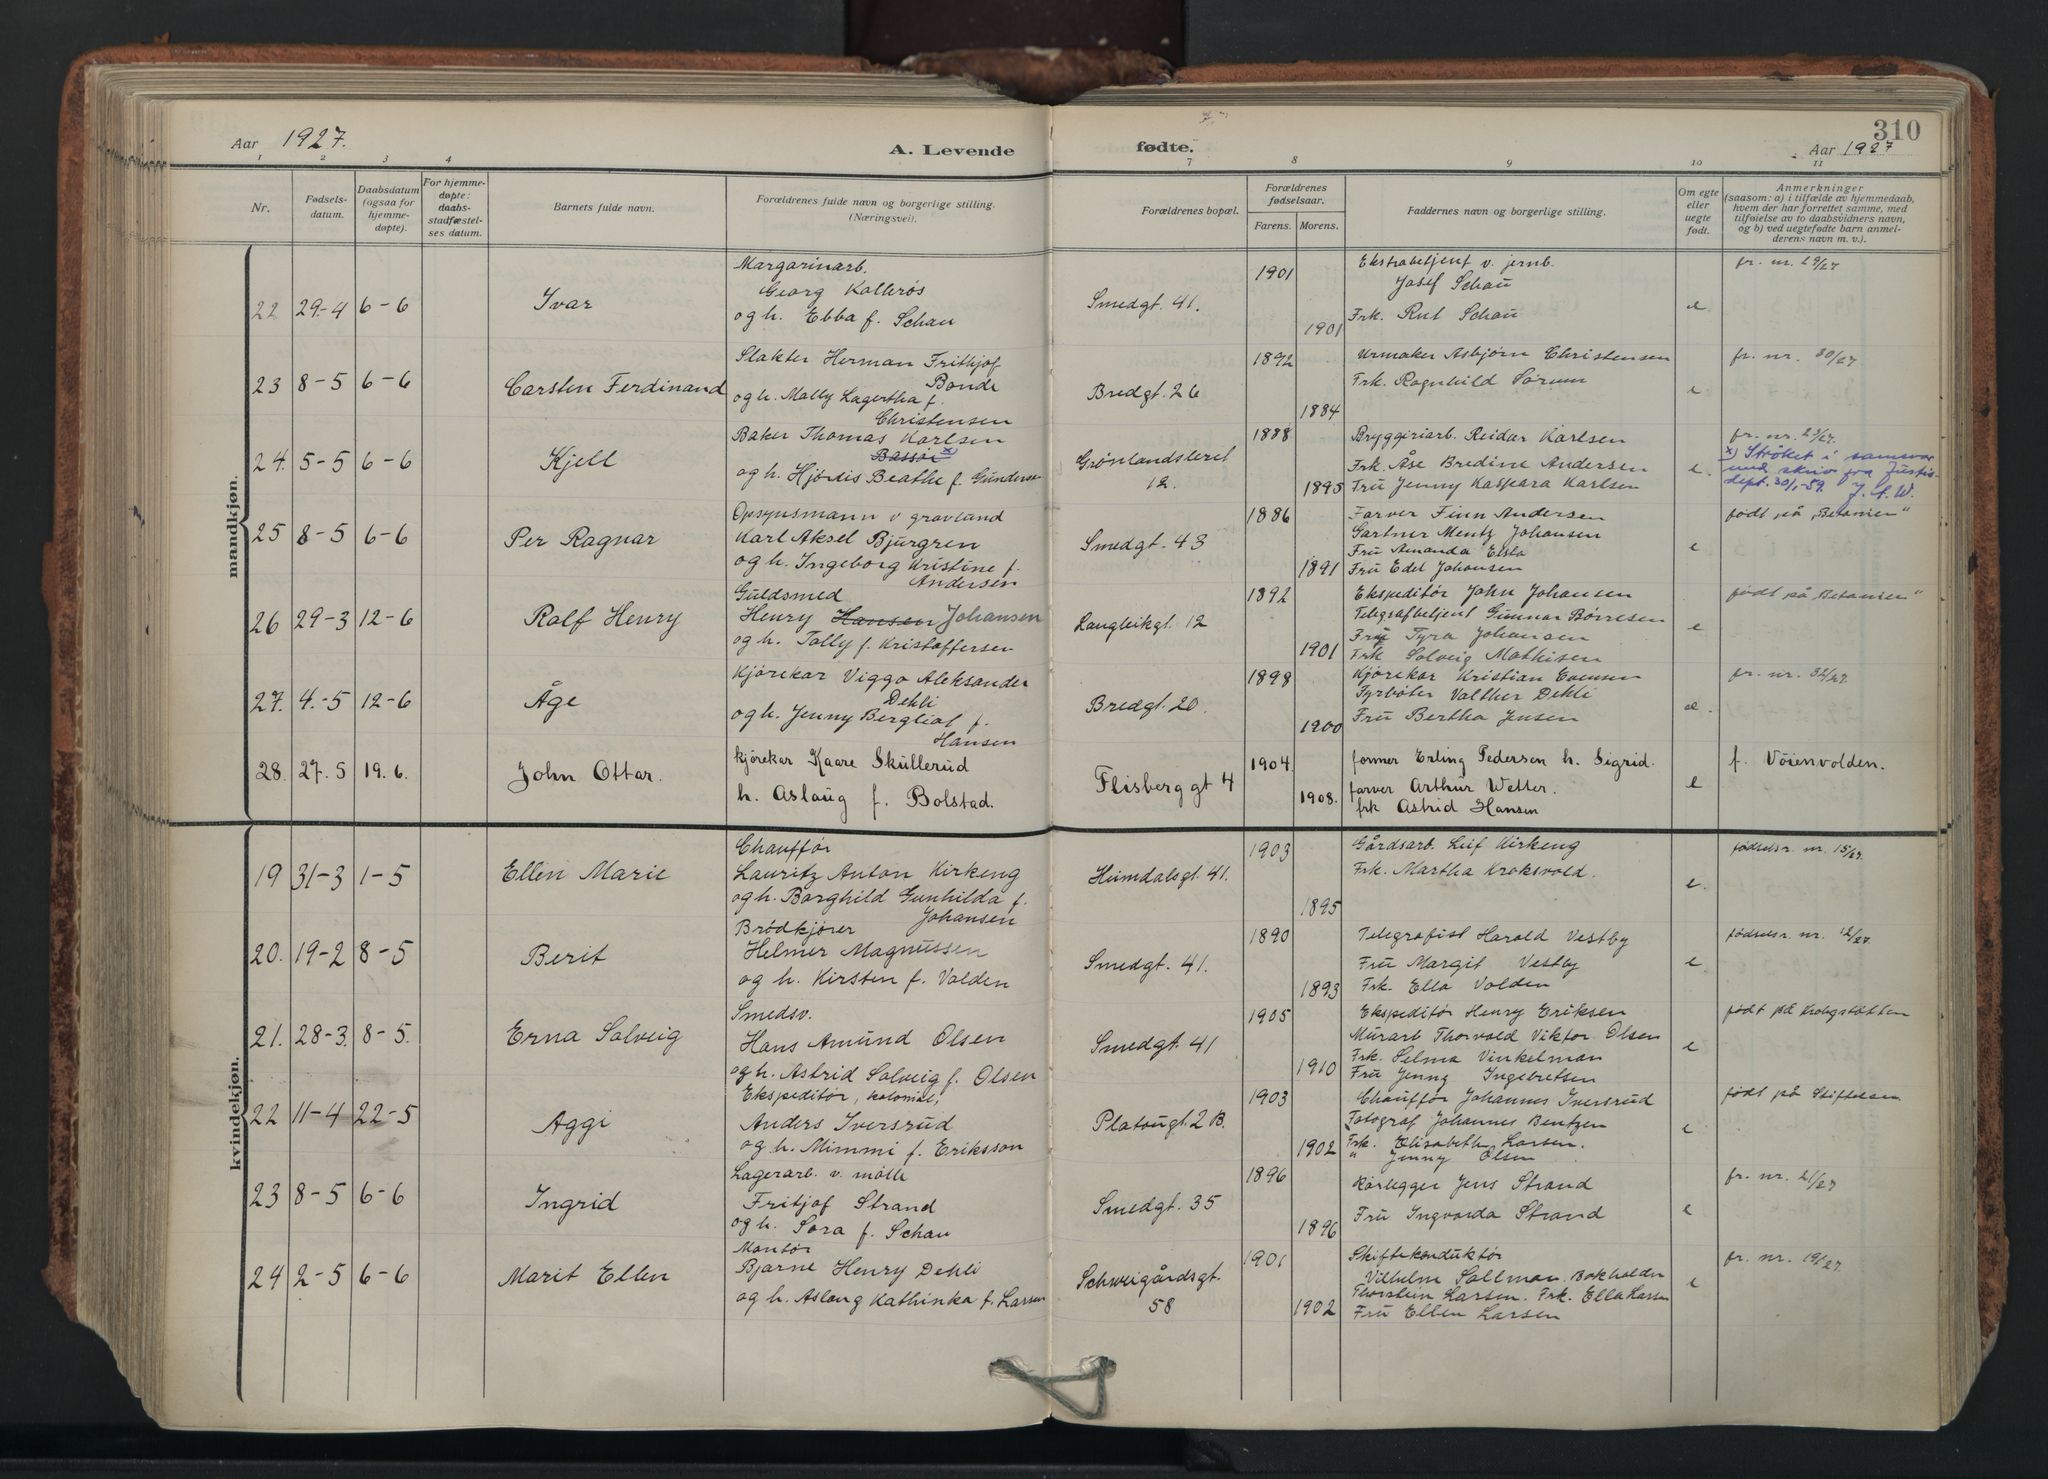 Aar 1927.
A. Levende fødte.
310
Aar 1927
1 2 3 4 7 8 9 10 11
Nr.
Fødsels-
datum.
Daabsdatum
(ogsaa for
hjemme-
døpte).
For hjemme-
døpte:
daabs-
stadfæstel-
ses datum.
Barnets fulde navn.
Forældrenes fulde navn og borgerlige stilling.
(Næringsvei).
Forældrenes bopæl.
Forældrenes
fødselsaar.
Farens. Morens.
Faddernes navn og borgerlige stilling.
Om egte
eller
uegte
født.
Anmerkninger
(saasom: a) i tilfælde av hjemmedaab,
hvem der har forrettet samme, med
tilføielse av to daabsvidners navn,
og b) ved uegtefødte barn anmel-
derens navn m. v.).
mandkjøn.
22 29-4 6-6 Ivar
Margarinarb.
Georg Kollerøs
og h. Ebba f. Schau
Smedgt. 41.
1901
1901
Ekstrabetjent v. jernb.
Josef Schau
Frk. Rut Schau
e
fr. nr. 29/27
23 8-5 6-6 Carsten Ferdinand
Slakter Herman Frithjof
Bonde
og h. Molly Lagertha f.
Christensen
Bredgt. 26
1892
1884
Urmaker Asbjørn Christensen
Frk. Ragnhild Sørum
e
fr. nr. 30/27
24. 5-5 6-6 Kjell
Baker Thomas Karlsen
Bassøe x)
og h. Hjørdis Beathe f. Gundersen
Grønlandsleret
12.
1888
1895
Bryggeriarb. Reidar Karlsen
Frk. Åse Bredine Andersen
Fru Jenny Kaspara Karlsen
e
fr. nr. 23/27.
x) Strøket i samsvar
med skriv fra Justis-
dept. 30/1-59. J. S. W.
25 8-5 6-6 Per Ragnar
Opsynsmann v gravlund
Karl Aksel Bjurgren
og h. Ingeborg Kristine f.
Andersen
Smedgt. 43
1886
1891
Farver Finn Andersen
Gartner Mentz Johansen
Fru Amanda Elsta
Fru Edel Johansen
e
født på „Betanien“
26 29-3 12-6 Rolf Henry
Guldsmed
Henry Hansen Johansen
og h. Tolly f. Kristoffersen
Langleikgt. 12
1892
1901
Ekspeditør John Johansen
Telegrafbetjent Gunnar Børresen
Fru Tyra Johansen
Frk Solveig Mathisen
e
født på „Betanien“
27. 4.-5 12-6 Åge
Kjørekar Viggo Aleksander
Dehli
og h. Jenny Bergliot f.
Hansen
Bredgt. 20.
1898
1900
Kjørekar Kristian Evensen
Fyrbøter Valther Dehli
Fru Bertha Jensen
e.
fr. nr. 32/27.
28. 27.5 19.6. John Ottar.
kjørekar Kaare Skullerud
h. Aslaug f. Bolstad.
Flisberggt 4
1904
1908.
former Erling Pedersen h. Sigrid.
farver Arthur Wetter.
frk Astrid Hansen
e
f. Vøienvolden.
kvindekjøn.
19 31-3 1-5 Ellen Marie
Chauffør
Lauritz Anton Kirkeng
og h. Borghild Gunhilda f.
Johansen
Heimdalsgt. 41.
1903
1895
Gårdsarb. Leif Kirkeng
Frk. Martha Kroksvold.
e.
fødselsr. nr. 15/27.
20. 19-2 8-5 Berit
Brødkjører
Helmer Magnussen
og h. Kirsten f. Volden
Smedgt. 41.
1890
1893
Telegrafist Harald Vestby
Fru Margit Vestby
Frk. Ella Volden
e
fødselsr. nr. 12/27.
21. 28-3. 8-5. Erna Solveig
Smedsv.
Hans Amund Olsen
og h. Astrid Solveig f. Olsen
Smedgt. 41
1905
1910
Ekspeditør Henry Eriksen
Murarb Thorvald Viktor Olsen
Frk. Selma Vinkelman
Fru Jenny Ingebretsen
e
født på Krohgstøtten
22 11-4 22-5 Aggi
Ekspeditør, kolonial,
Anders Iversrud
og h. Mimmi f. Eriksson
Platougt. 2 B.
1903
1902
Chauffør Johannes Iversrud
Fotograf Johannes Bentzen
Frk. Elisabeth Larsen.
" Jenny Olsen
e
født på Stiftelsen
23 8-5 6-6 Ingrid
Lagerarb. v. mølle
Fritjof Strand
og h. Sora f. Schau
Smedgt. 35
1896
1896
Rørlegger Jens Strand
Fru Ingvarda Strand
e
fr. nr. 21/27
24 2-5 6-6 Marit Ellen
Montør
Bjarne Henry Dehli
og h. Aslaug Kathinka f. Larsen
Schweigårdsgt.
58
1901
1902
Skiftekonduktør
Vilhelm Sollman. Bokholder
Thorstein Larsen. Frk. Ella Larsen
Fru Ellen Larsen
e
fr. nr. 19/27.